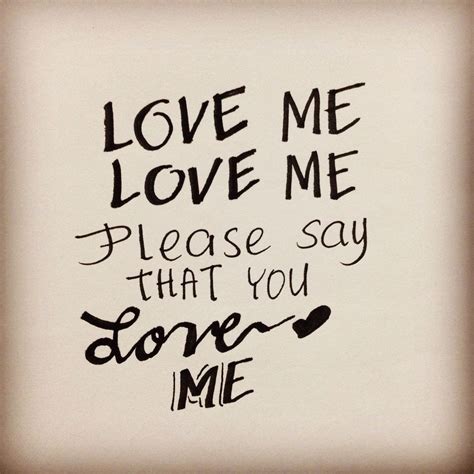 LOVE ME
LOVE ME
Please say
THAT YOU
Love
ME